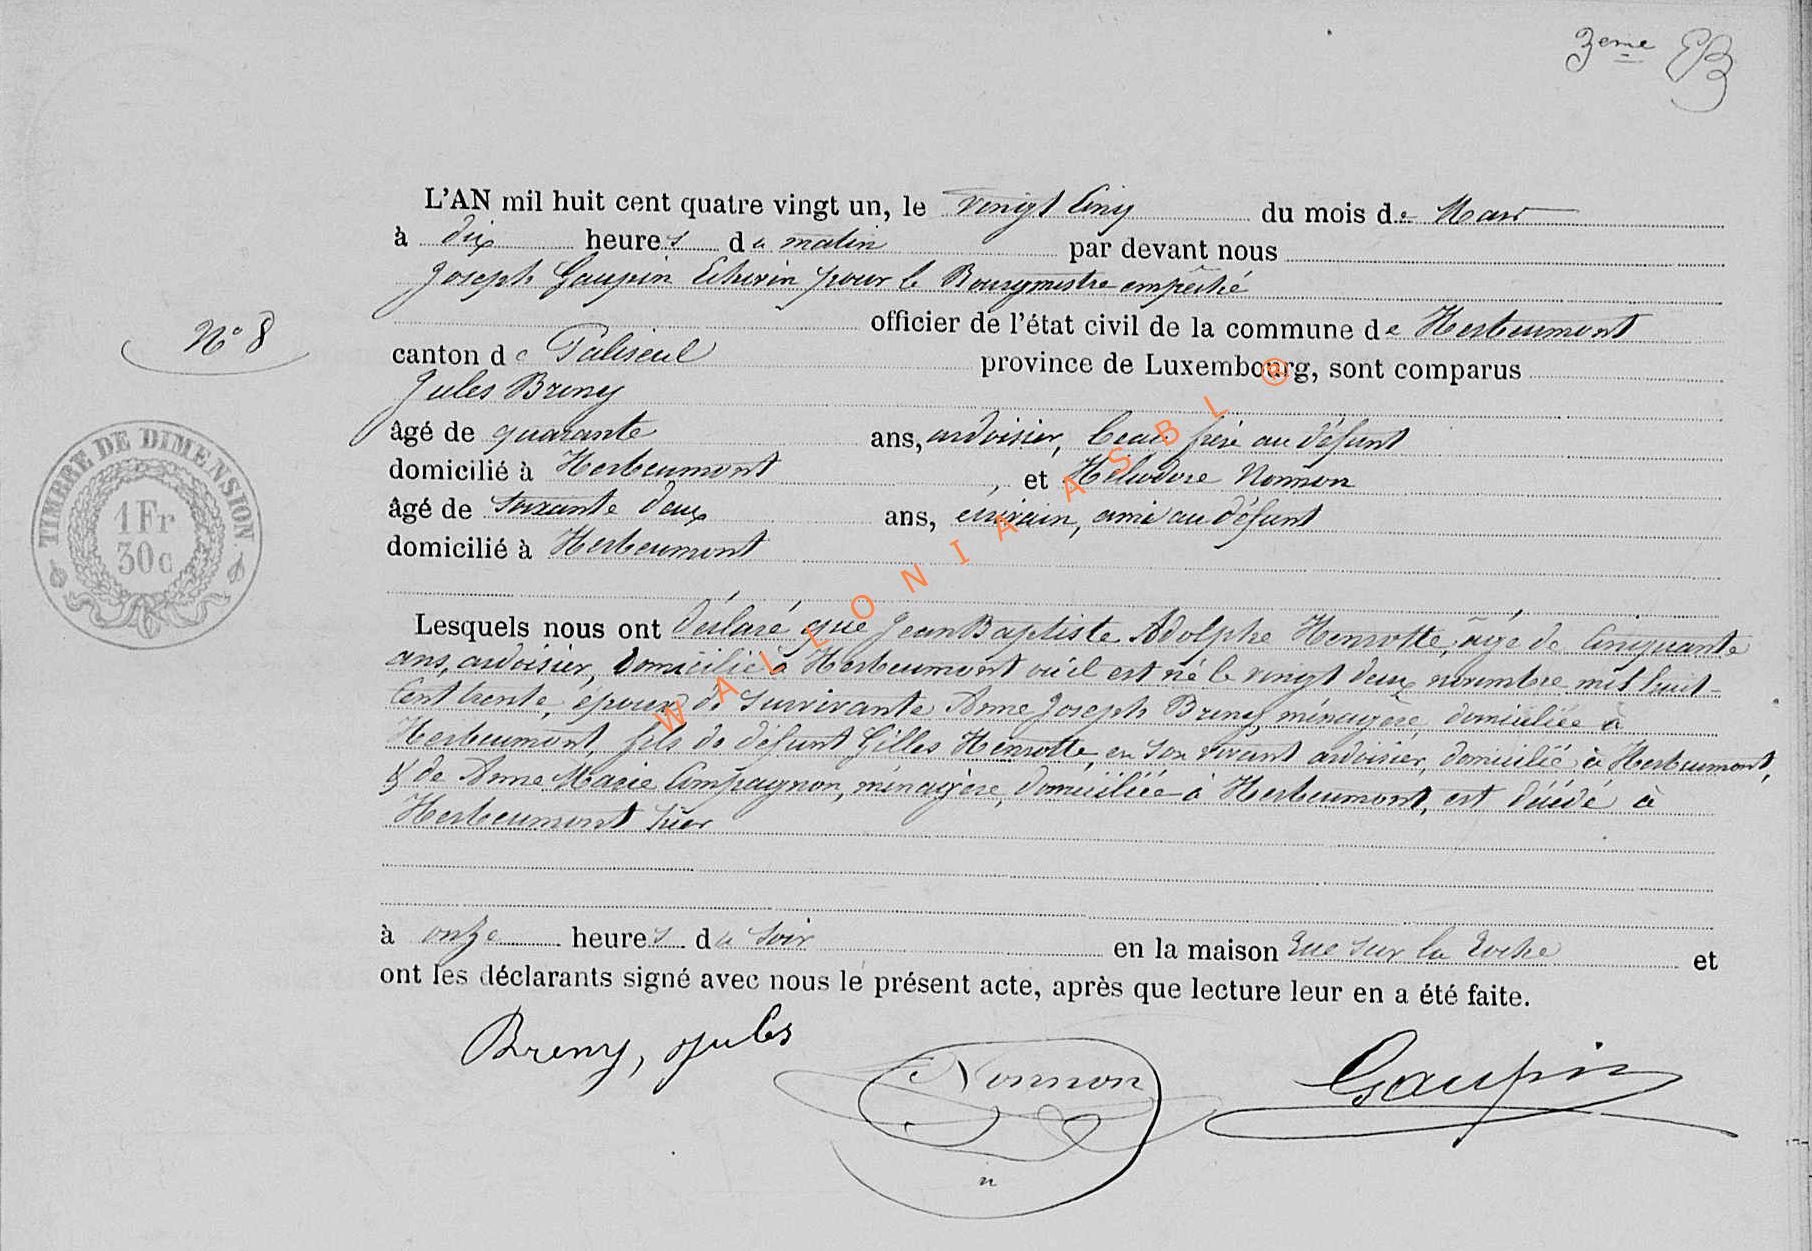 3eme EB
L'AN mil huit cent quatre vingt un, le vingt cinq du mois de Mars
à dix heures du matin par devant nous
Joseph Gaupin Echevin pour le Bourgmestre empêché
officier de l'état civil de la commune de Herbeumont
N° 8
canton de Paliseul province de Luxembourg, sont comparus
Jules Breny
âgé de quarante ans, ardoisier, beau frère au défunt
domicilié à Herbeumont, et Héliodore Nonnon
âgé de soixante deux ans, écrivain, ami au défunt
domicilié à Herbeumont
TIMBRE DE DIMENSION
1 Fr
30c
Lesquels nous ont déclaré que Jean Baptiste Adolphe Henrotte, âgé de cinquante
ans, ardoisier, domicilié à Herbeumont où il est né le vingt deux novembre mil huit-
cent trente, époux de survivante Anne Joseph Breny, ménagère, domiciliée à
Herbeumont, fils de défunt Gilles Henrotte, en son vivant ardoisier, domicilié à Herbeumont,
& de Anne Marie Compagnon, ménagère, domiciliée à Herbeumont, est décédé à
Herbeumont hier
à onze heures du soir en la maison rue sur la roche et
ont les déclarants signé avec nous le présent acte, après que lecture leur en a été faite.
Breny, Jules
Nonnon
Gaupin
WALLONIA ASBL ®